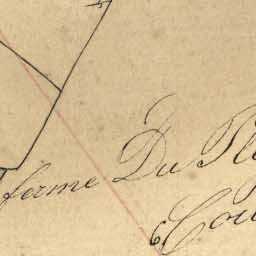 ferme Du Ple
6 Cou